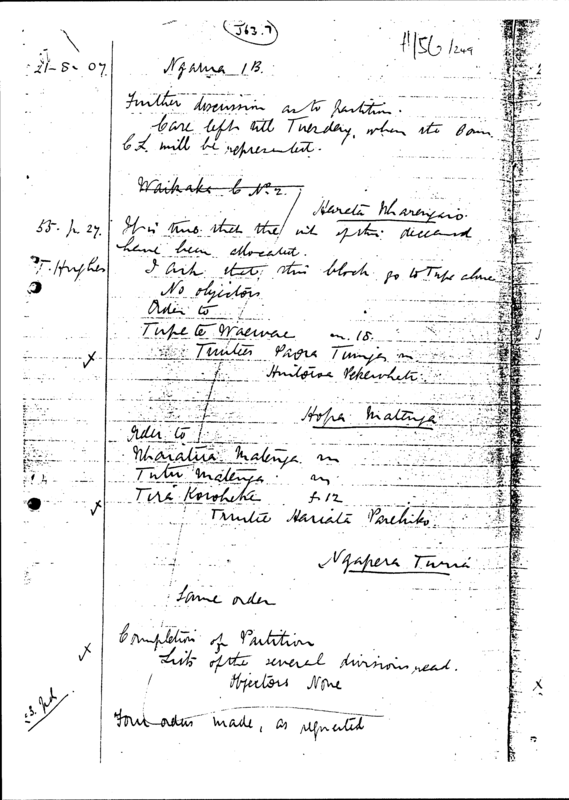 J63.7
H/56/249
21-8-07 Ngarua 1B.
Further discussion as to partition.
Case left till Tuesday, when the
C.L. will be represented.
Waikaka C No. 2.
Hareta Wharengaio
55. p 27. It is true that the of this deceased
have been allocated.
T. Hughes I ask that this block go to Tupe alone
No objectors
Order to
Tupe te Waewae m. 15.
Trustees Paora m
Hopa Matenga
Order to
Wharatira Matenga m
Tutu Matenga m
Tira Koroheke f 12
Trustee Hariata Parehiko
Ngapera
Same order
Completion of Partition
Lists of the several divisions read.
Objectors None
Four orders made, as requested